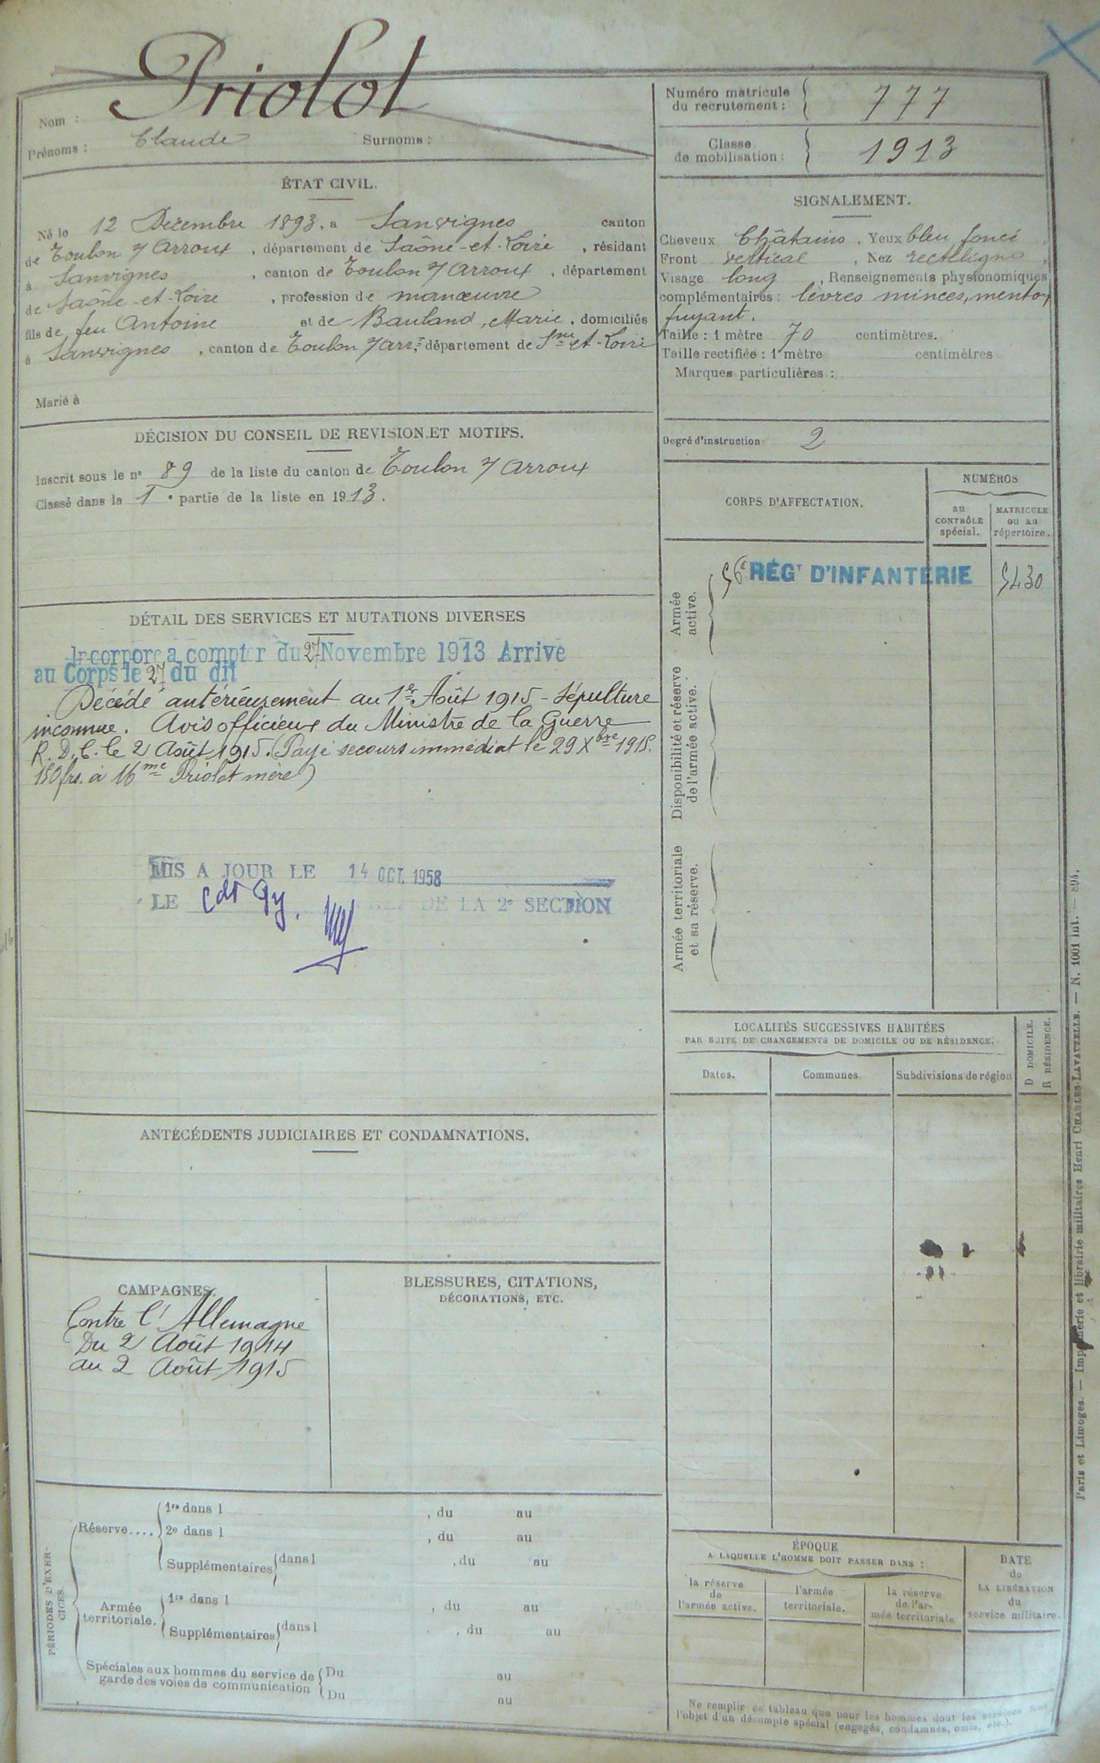 Nom : Priolot
Prénoms : Claude Surnoms :
Numéro matricule
du recrutement : 777
Classe
de mobilisation : 1913
ÉTAT CIVIL.
Né le 12 Décembre 1893, à Sanvignes canton
de Toulon s/ Arroux, département de Saône-et-Loire, résidant
à Sanvignes, canton de Toulon s/ Arroux, département
de Saône-et-Loire, profession de manœuvre
fils de feu Antoine et de Bauland, Marie, domiciliés
à Sanvignes, canton de Toulon s/ Arr., département de Sne et-Loire
Marié à
SIGNALEMENT.
Cheveux Châtains. Yeux bleu foncé,
Front vertical, Nez rectiligne,
Visage long, Renseignements physionomiques
complémentaires : lèvres minces, menton
fuyant.
Taille : 1 mètre 70 centimètres.
Taille rectifiée : 1 mètre centimètres
Marques particulières :
Degré d'instruction 2
DÉCISION DU CONSEIL DE REVISION ET MOTIFS.
Inscrit sous le n° 89 de la liste du canton de Toulon s/ Arroux
Classé dans la 1e partie de la liste en 1913.
CORPS D'AFFECTATION.
NUMÉROS
au
CONTRÔLE
spécial.
MATRICULE
ou au
répertoire.
Armée
active.
56e RÉGT D'INFANTERIE 5430
Disponibilité et réserve
de l'armée active.
Armée territoriale
et sa réserve.
DÉTAIL DES SERVICES ET MUTATIONS DIVERSES
Incorporé à compter du 27 Novembre 1913 Arrivé
au Corps le 27 du dit
Décédé antérieurement au 1er Août 1915 - Sépulture
inconnue. Avis officieux du Ministre de la Guerre
R.D.C. le 2 Août 1915. (Payé secours immédiat le 29 Xbre 1915.
150 frs. à Mme Priolot mère)
MIS A JOUR LE 14 OCT. 1958
LE Cdt DE LA 2e SECTION
LOCALITÉS SUCCESSIVES HABITÉES
PAR SUITE DE CHANGEMENTS DE DOMICILE OU DE RÉSIDENCE.
D DOMICILE.
R RÉSIDENCE.
Dates. Communes. Subdivisions de région
ANTÉCÉDENTS JUDICIAIRES ET CONDAMNATIONS.
CAMPAGNES.
Contre l'Allemagne
Du 2 Août 1914
au 2 Août 1915
BLESSURES, CITATIONS,
DÉCORATIONS, ETC.
PÉRIODES D'EXER-
CICES.
Réserve....
1re dans l , du au
2e dans l , du au
Supplémentaires dans l , du au
Armée
territoriale.
1re dans l , du au
Supplémentaires dans l , du au
Spéciales aux hommes du service de
garde des voies de communication
Du au
Du au
ÉPOQUE
A LAQUELLE L'HOMME DOIT PASSER DANS :
la réserve
de
l'armée active.
l'armée
territoriale.
la réserve
de l'ar-
mée territoriale
DATE
de
LA LIBÉRATION
du
service militaire.
Ne remplir ce tableau que pour les hommes dont les services font
l'objet d'un décompte spécial (engagés, condamnés, omis, etc.).
Paris et Limoges. — Imprimerie et librairie militaires Henri CHARLES-LAVAUZELLE. — N. 1001 int. — 894.